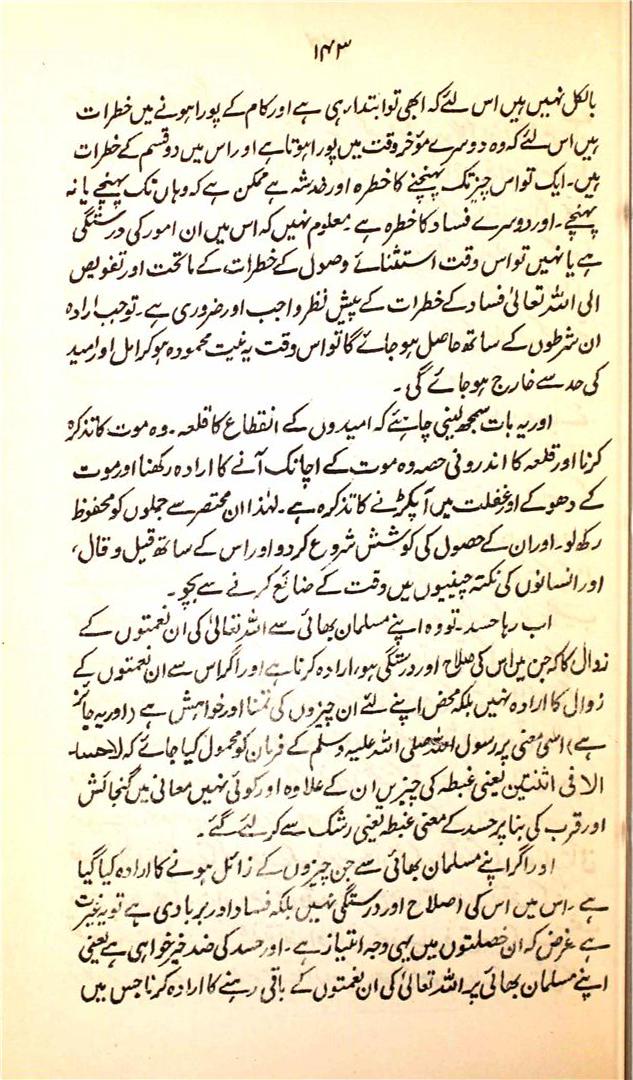 ۱۴۳
بالکل نہیں ہیں اس لئے کہ ابھی تو ابتدا رہی ہے اور کام کے پورا ہونے میں خطرات
ہیں اس لئے کہ وہ دوسرے مؤخر وقت میں پورا ہوتا ہے اور اس میں دو قسم کے خطرات
ہیں۔ ایک تو اس چیز تک پہنچنے کا خطرہ اور خدشہ ہے ممکن ہے کہ وہاں تک پہنچے یا نہ
پہنچے۔ اور دوسرے فساد کا خطرہ ہے معلوم نہیں کہ اس میں ان امور کی درستگی
ہے یا نہیں تو اس وقت استثنائے وصول کے خطرات کے ماتحت اور تفویض
الی اللہ تعالیٰ فساد کے خطرات کے پیش نظر واجب اور ضروری ہے۔ تو جب ارادہ
ان شرطوں کے ساتھ حاصل ہو جائے گا تو اس وقت یہ نیت محمودہ ہو کر امل اور امید
کی حد سے خارج ہو جائے گی۔
اور یہ بات سمجھ لینی چاہئے کہ امیدوں کے انقطاع کا قلعہ۔ وہ موت کا تذکرہ
کرنا اور قلعہ کا اندرونی حصہ وہ موت کے اچانک آنے کا ارادہ رکھنا اور موت
کے دھوکے اور غفلت میں آپکڑنے کا تذکرہ ہے۔ لہٰذا ان مختصر سے جملوں کو محفوظ
رکھ لو۔ اور ان کے حصول کی کوشش شروع کر دو اور اس کے ساتھ قیل و قال،
اور انسانوں کی نکتہ چینیوں میں وقت کے ضائع کرنے سے بچو۔
اب رہا حسد۔ تو وہ اپنے مسلمان بھائی سے اللہ تعالیٰ کی ان نعمتوں کے
زوال کا کہ جن میں اس کی صلاح اور درستگی ہو، ارادہ کرنا ہے اور اگر اس سے ان نعمتوں کے
زوال کا ارادہ نہیں بلکہ محض اپنے لئے ان چیزوں کی تمنا اور خواہش ہے (اور یہ جائز
ہے) اسی معنی پر رسول اللہ صلی اللہ علیہ وسلم کے فرمان کو محمول کیا جائے کہ لاحسد
الا فی اثنتین یعنی غبطہ کی چیزیں ان کے علاوہ اور کوئی نہیں معانی میں گنجائش
اور قرب کی بنا پر حسد کے معنی غبطہ یعنی رشک سے کر لئے گئے۔
اور اگر اپنے مسلمان بھائی سے جن چیزوں کے زائل ہونے کا ارادہ کیا گیا
ہے۔ اس میں اس کی اصلاح اور درستگی نہیں بلکہ فساد اور بربادی ہے تو یہ غیرت
ہے غرض کہ ان خصلتوں میں یہی وجہ امتیاز ہے۔ اور حسد کی ضد خیر خواہی ہے یعنی
اپنے مسلمان بھائی پر اللہ تعالیٰ کی ان نعمتوں کے باقی رہنے کا ارادہ کرنا جس میں